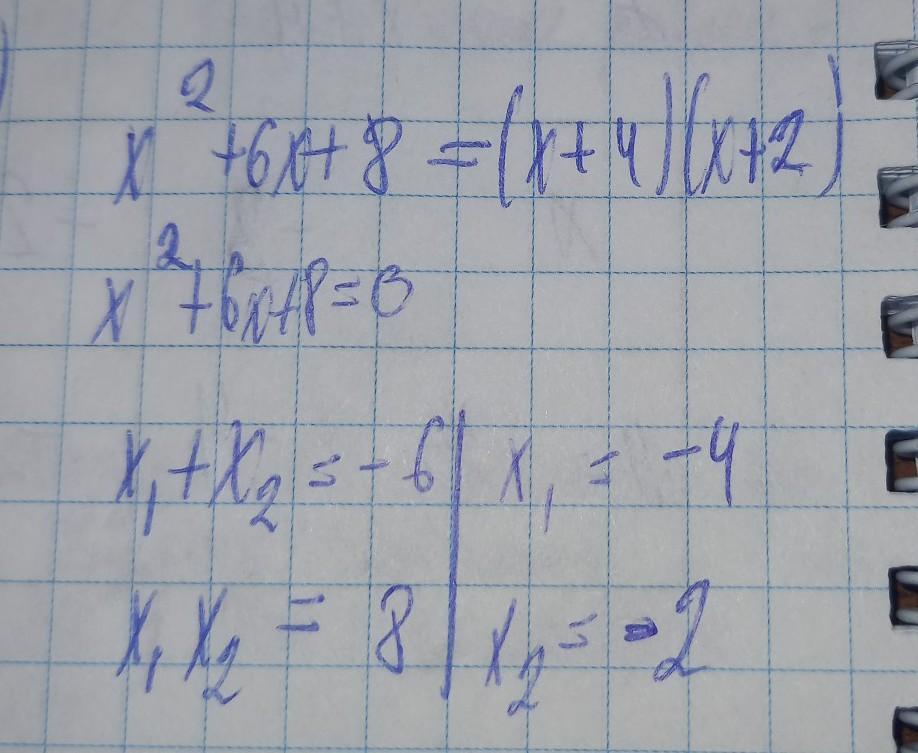 x² + 6x + 8 = (x + 4)(x + 2)
x² + 6x + 8 = 0
x₁ + x₂ = -6 | x₁ = -4
x₁ x₂ = 8 | x₂ = -2